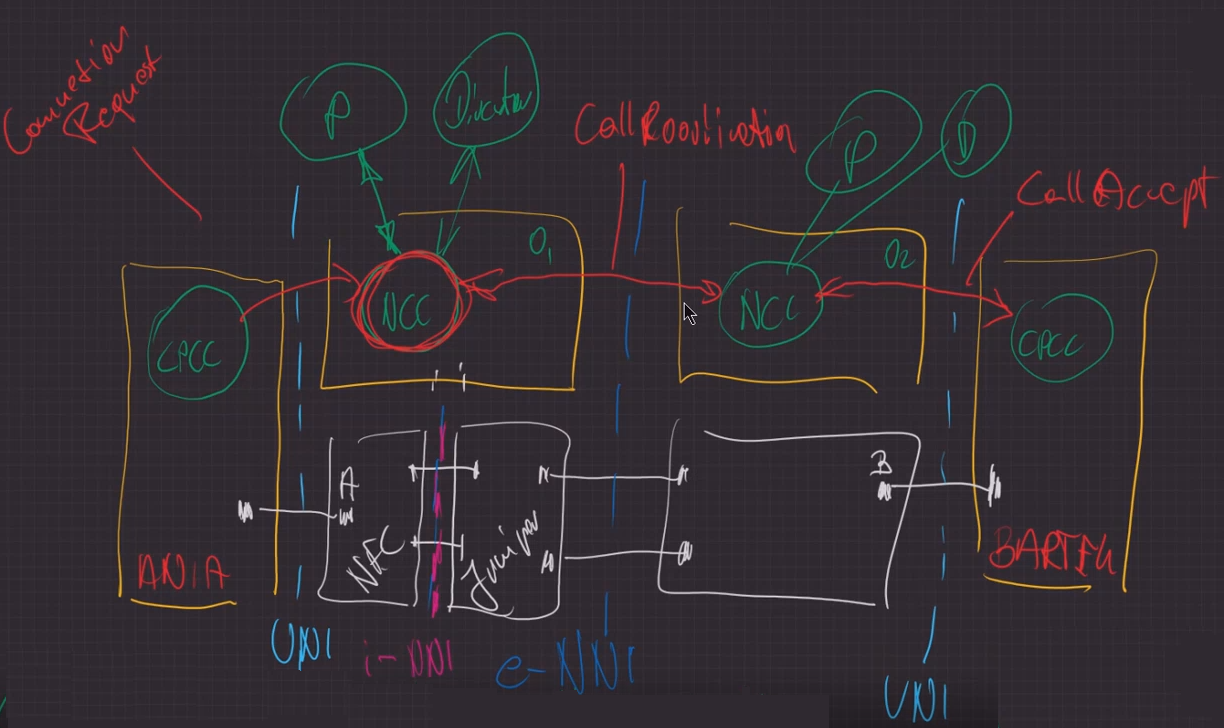 Connection
Request
P
Directory
Call Coordination
P
D
Call Accept
O1
O2
CPCC
NCC
NCC
CPCC
A
B
NEC
Juniper
ANIA
BARTEK
UNI
i-NNI
e-NNI
UNI